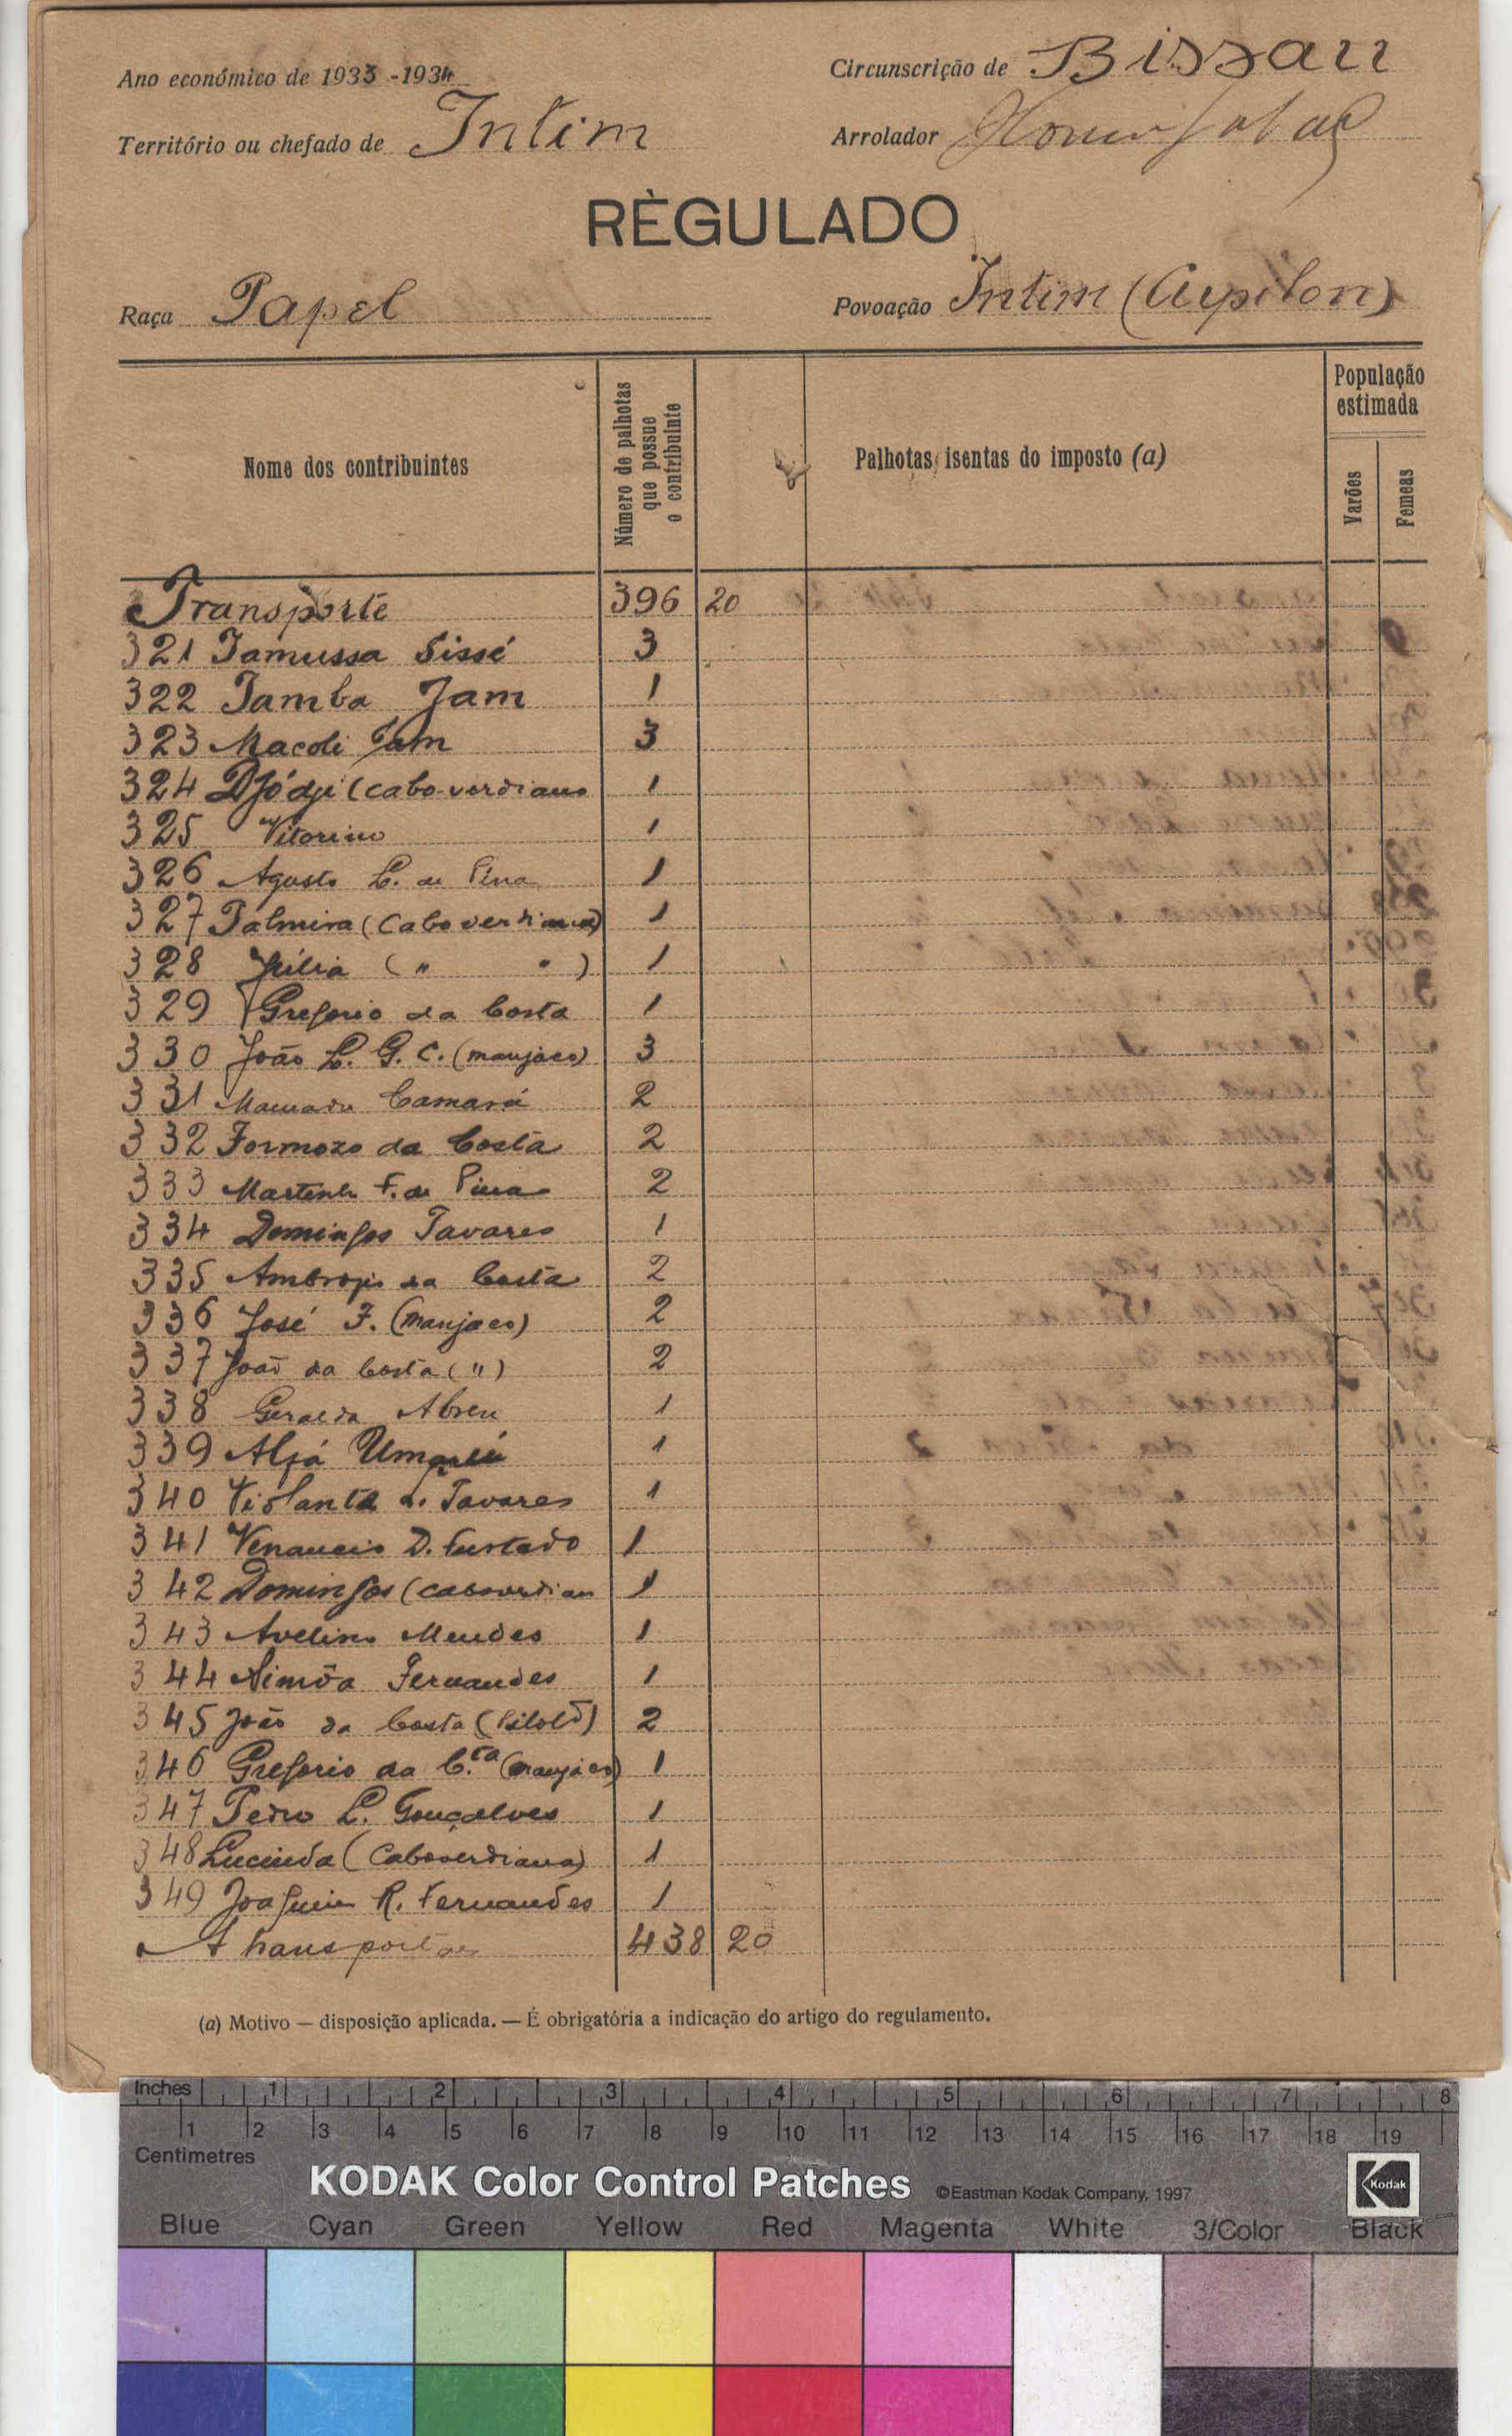 Ano económico de 1933-1934
Circunscrição de Bissau
Território ou chefado de Intim
Arrolador
RÈGULADO
Raça Papel
Povoação Intim (Cupilon)
Nome dos contribuintes
Número de palhotas que possue o contribuinte
Palhotas isentas do imposto (a)
População estimada
Varões
Femeas
Transporte 396 20
321 Tamussa Sissé 3
322 Tamba Jam 1
323 Macoli Jam 3
324 Djódji (cabo-verdiano 1
325 Vitorino 1
326 Agusto L. de Pina 1
327 Palmira (Caboverdiana) 1
328 Júlia (" ") 1
329 Gregorio da Costa 1
330 João L. G. C. (manjaco) 3
331 Mamadu Camará 2
332 Formozo da Costa 2
333 Martinho F. de Pina 2
334 Domingos Tavares 1
335 Ambrozio da Costa 2
336 José F. (manjaco) 2
337 João da Costa (") 2
338 Geralda Abreu 1
339 Alfá Umarú 1
340 Violanta L. Tavares 1
341 Venancio D. Furtado 1
342 Domingos (caboverdian 1
343 Avelino Mendes 1
344 Simôa Fernandes 1
345 João da Costa (Piloto) 2
346 Gregorio da C.ta (manjaco) 1
347 Pedro L. Gonçalves 1
348 Lucinda (Caboverdiana) 1
349 Joaquim R. Fernandes 1
A transportar 438 20
(a) Motivo — disposição aplicada. — É obrigatória a indicação do artigo do regulamento.
Inches 1 2 3 4 5 6 7 8
1 2 3 4 5 6 7 8 9 10 11 12 13 14 15 16 17 18 19
Centimetres
KODAK Color Control Patches ©Eastman Kodak Company, 1997 Kodak
Blue Cyan Green Yellow Red Magenta White 3/Color Black